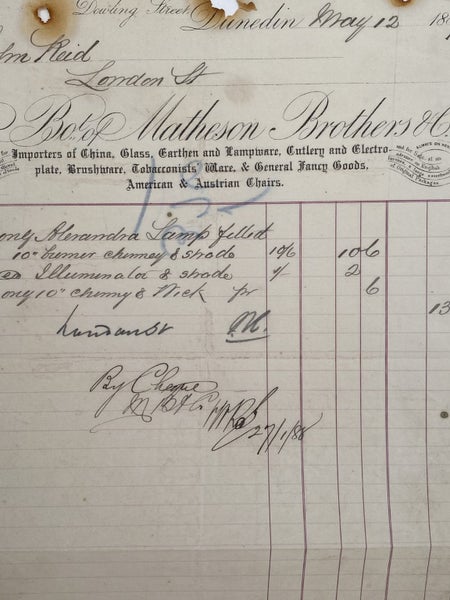 Dowling Street Dunedin May 12 18
Reid
London St
Bot. of Matheson Brothers & Co.
Importers of China, Glass, Earthen and Lampware, Cutlery and Electro-
plate, Brushware, Tobacconists' Ware, & General Fancy Goods,
American & Austrian Chairs.
one Alexandra Lamp fitted
10" burner chimney & shade 10/6 10 6
Illuminator & shade 2
one 10" chimny & Wick pr 6
13
London St
By Cheque
M B & Co
27/1/88